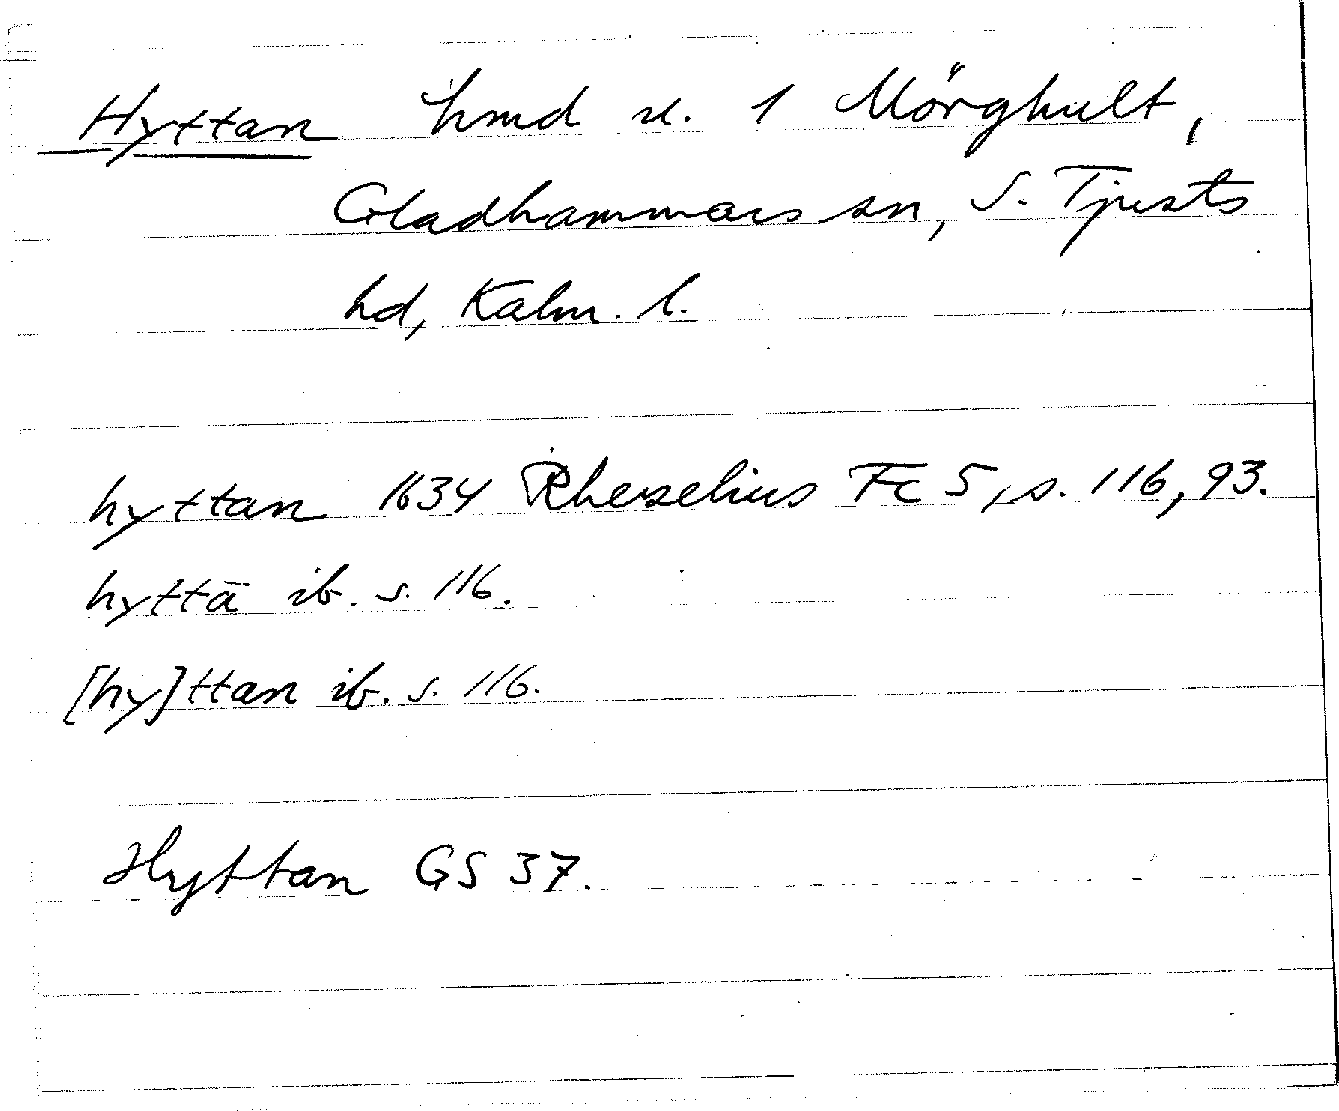 Hyttan hmd u. 1 Mörghult,
Gladhammars sn, S. Tjusts
hd, Kalm. l.
hyttan 1634 Rhezelius Fc 5, s. 116, 93.
hyttā ib. s. 116.
[hy]ttan ib. s. 116.
Hyttan GS 37.